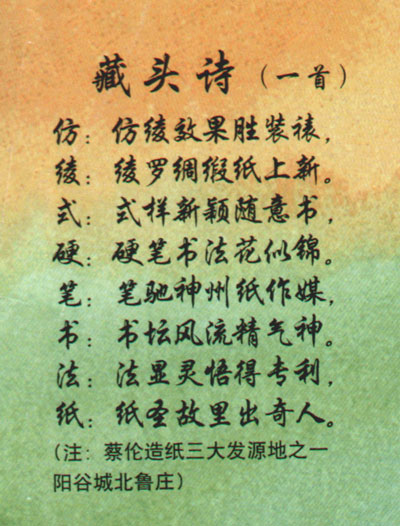 藏头诗（一首）
仿：仿绫效果胜装裱，
绫：绫罗绸缎纸上新。
式：式样新颖随意书，
硬：硬笔书法花似锦。
笔：笔驰神州纸作媒，
书：书坛风流精气神。
法：法显灵悟得专利，
纸：纸圣故里出奇人。
(注：蔡伦造纸三大发源地之一
阳谷城北鲁庄）